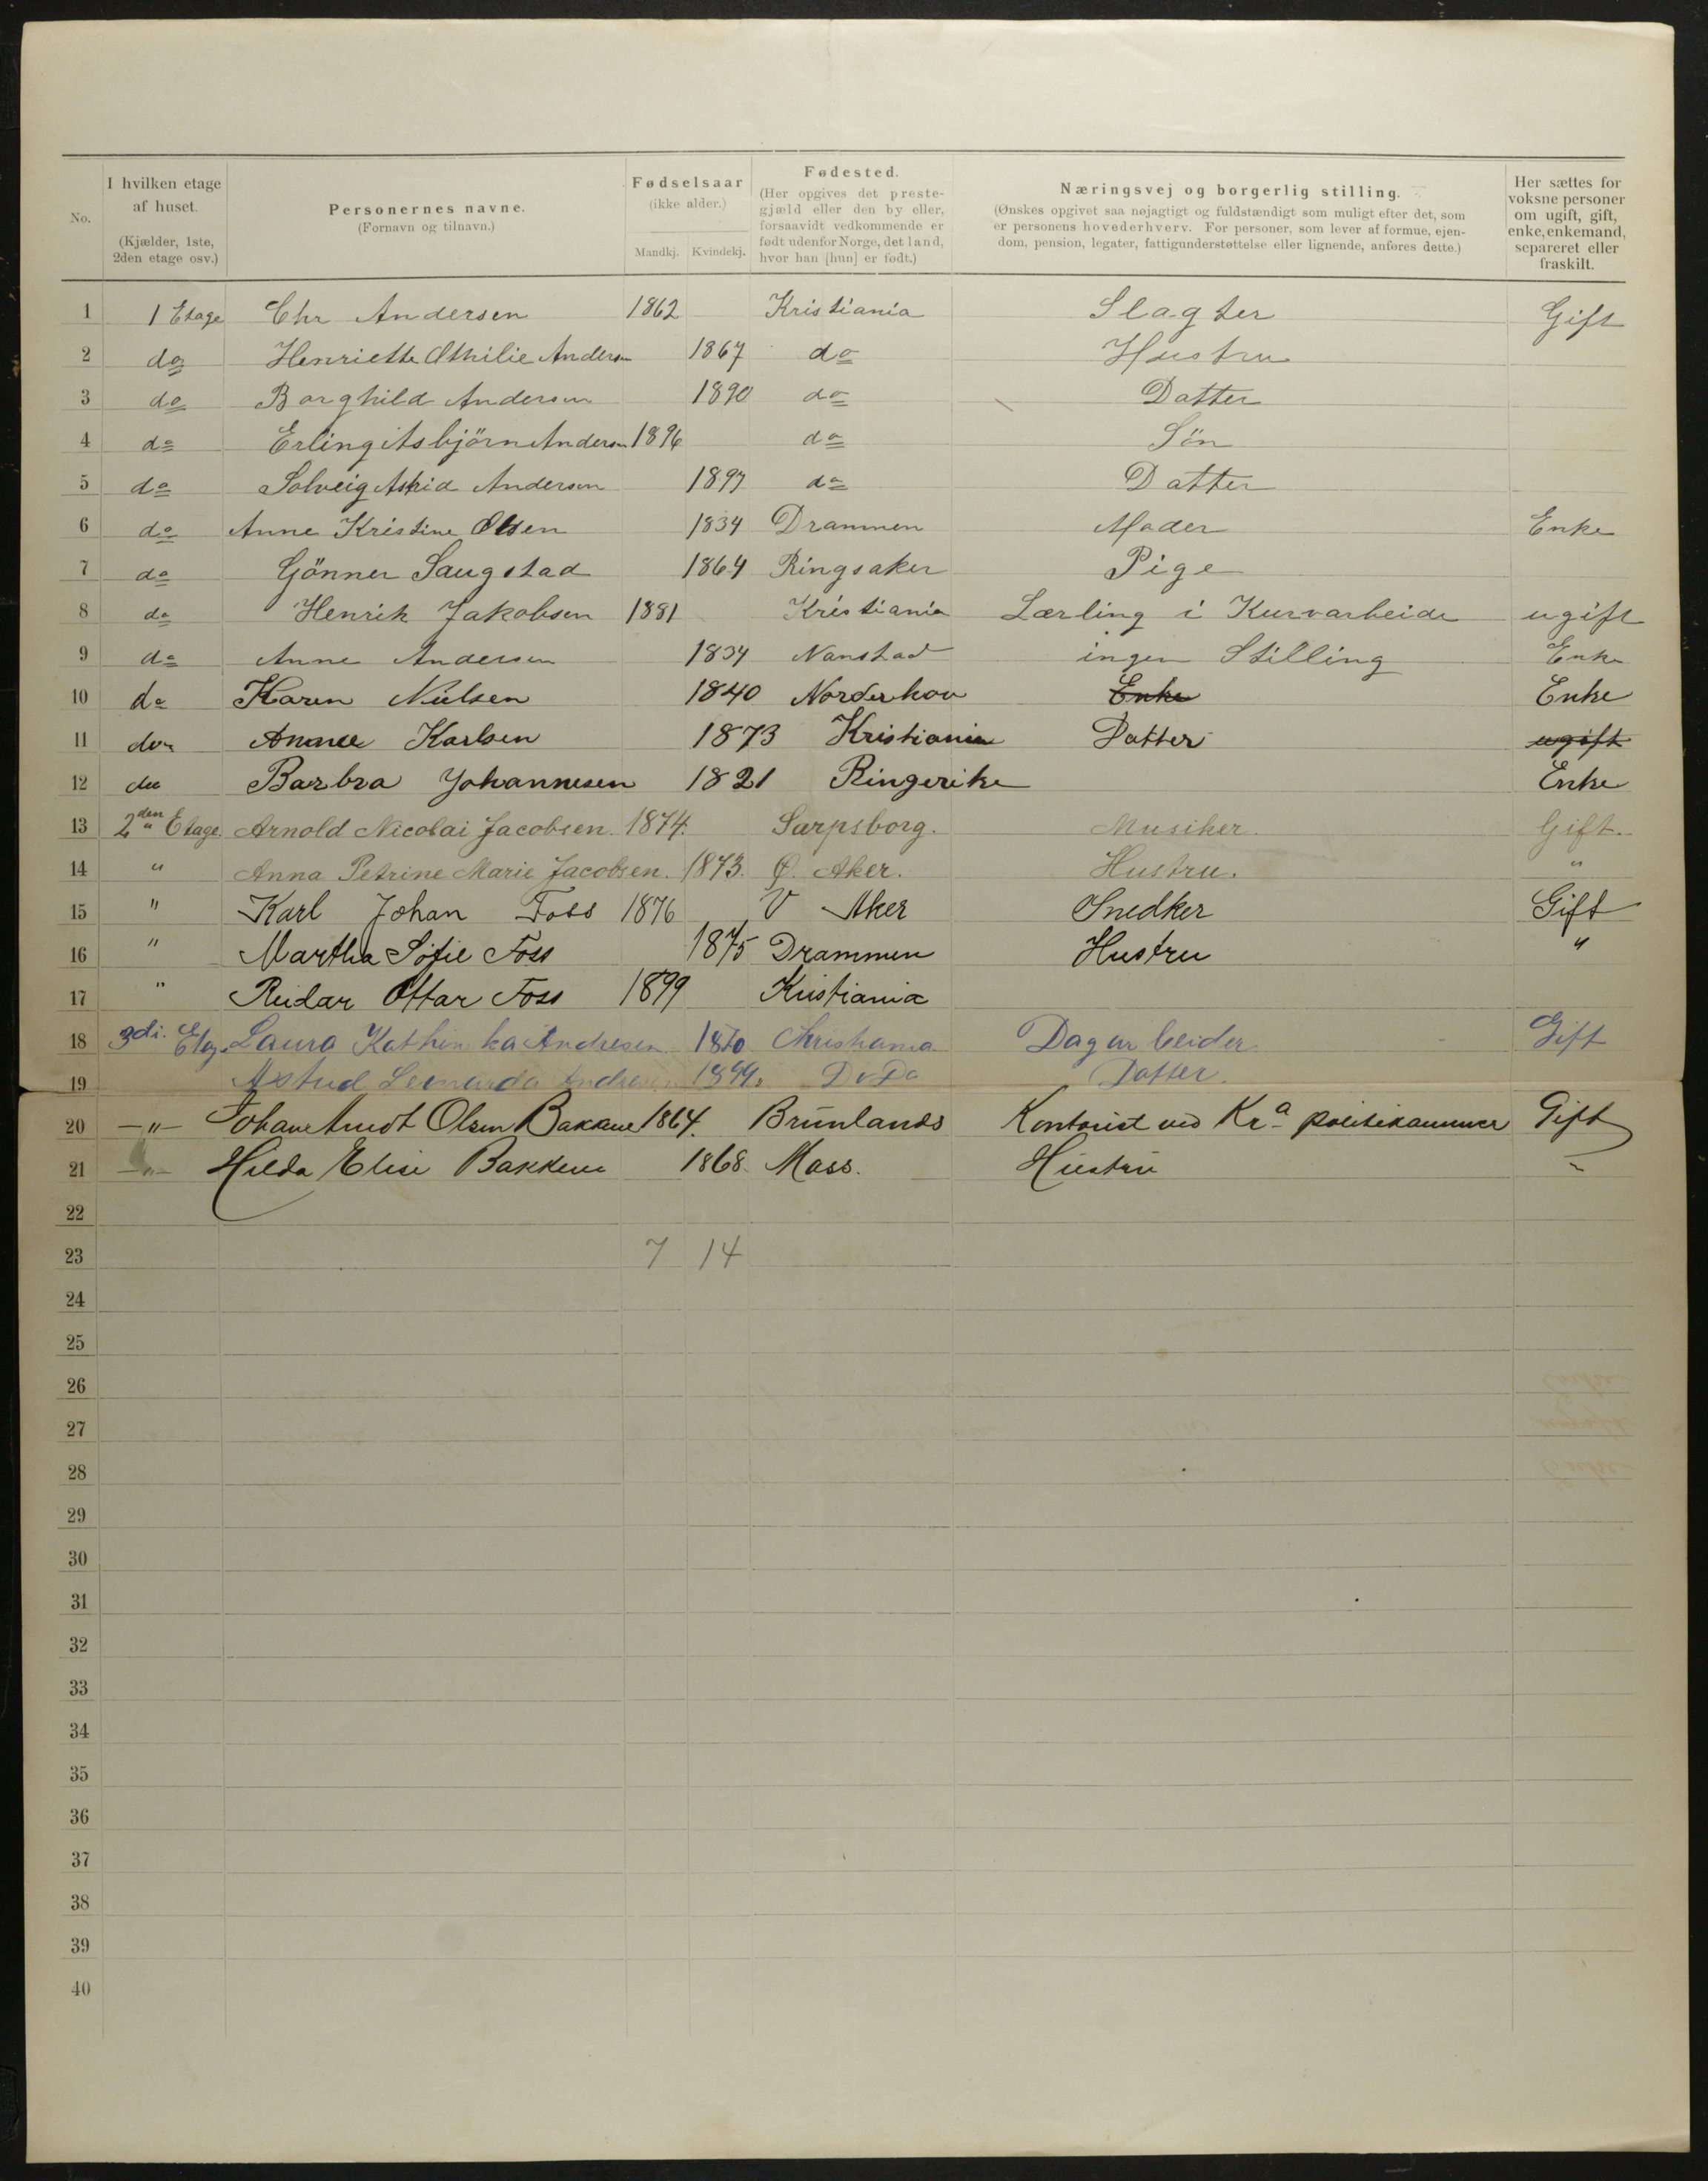 No.
I hvilken etage af huset. (Kjælder, 1ste, 2den etage osv.)
Personernes navne. (Fornavn og tilnavn.)
Fødselsaar (ikke alder.) Mandkj. Kvindekj.
Fødested. (Her opgives det prestegjæld eller den by eller, forsaavidt vedkommende er født udenfor Norge, det land, hvor han [hun] er født.)
Næringsvej og borgerlig stilling. (Ønskes opgivet saa nøjagtigt og fuldstændigt som muligt efter det, som er personens hovederhverv. For personer, som lever af formue, ejendom, pension, legater, fattigunderstøttelse eller lignende, anføres dette.)
Her sættes for voksne personer om ugift, gift, enke, enkemand, separeret eller fraskilt.
1 1 Etage Chr Andersen 1862 Kristiania Slagter Gift
2 do Henriette Othilie Andersen 1867 do Hustru
3 do Borghild Andersen 1890 do Datter
4 do Erling Asbjörn Andersen 1896 do Sön
5 do Solveig Astrid Andersen 1897 do Datter
6 do Anne Kristine Olsen 1834 Drammen Moder Enke
7 do Gönner Saugstad 1864 Ringsaker Pige
8 do Henrik Jakobsen 1881 Kristiania Lærling i Kurvarbeide ugift
9 do Anne Andersen 1834 Nanstad ingen Stilling Enke
10 do Karen Nielsen 1840 Norderhov Enke Enke
11 do Karlsen 1873 Kristiania Datter ugift
12 do Barbra Johannesen 1821 Ringerike Enke
13 2den Etage. Arnold Nicolai Jacobsen. 1874. Sarpsborg. Musiker. Gift.
14 " Anna Petrine Marie Jacobsen. 1873. Ø. Aker. Hustru. "
15 " Karl Johan Foss 1876 V Aker Snedker Gift
16 " Martha Sofie Foss 1875 Drammen Hustru "
17 " Reidar Ottar Foss 1899 Kristiania
18 3di. Etag. Laura Kathinka Andresen 1870 Christiania Dagarbeider Gift
19 Astrid Leonarda Andresen 1899. Do Do Datter.
20 —"— Johan Arndt Olsen Bakkene 1864. Brunlands Kontorist ved Kra politikammer Gift
21 —"— Hilda Elise Bakkene 1868 Moss. Hustru "
22
23 7 14
24
25
26
27
28
29
30
31
32
33
34
35
36
37
38
39
40